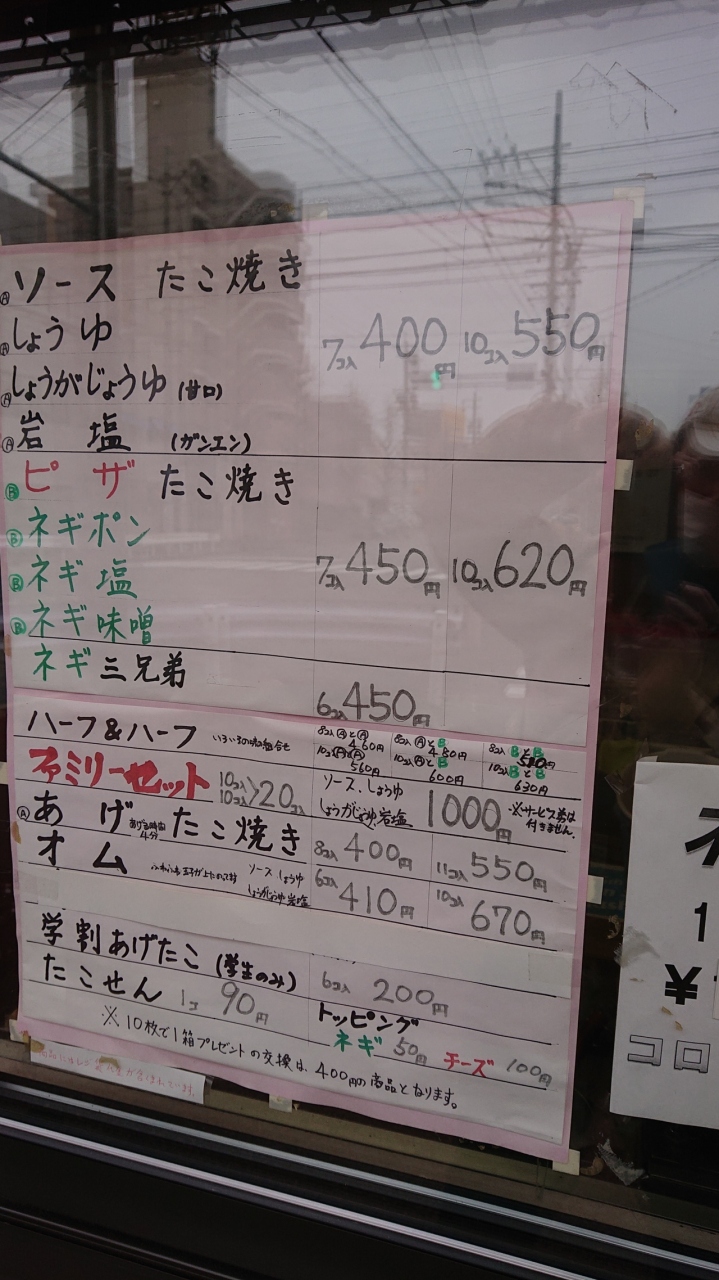 Ⓐソース たこ焼き
Ⓐしょうゆ
7コ入400円 10コ入550円
Ⓐしょうがじょうゆ (甘口)
Ⓐ岩 塩 (ガンエン)
Ⓑピ ザ たこ焼き
Ⓑネギポン
Ⓑネギ塩
7コ入450円 10コ入620円
Ⓑネギ味噌
ネギ三兄弟
6コ入450円
ハーフ&ハーフ
8コ入ⒶとⒶ 460円 8コ入ⒶとB 480円 8コ入BとB 510円
10コ入ⒶとⒶ 560円 10コ入ⒶとB 600円 10コ入BとB 630円
ファミリーセット 10コ入 10コ入>20コ入 ソース、しょうゆ しょうがじょうゆ、岩塩 1000円 ※サービス券は付きません
Ⓐあ げ あげる時間4分 たこ焼き 8コ入400円 11コ入550円
オ ム ソース しょうゆ しょうがじょうゆ 岩塩 6コ入410円 10コ入670円
学割あげたこ (学生のみ) 6コ入 200円
たこせん 1コ 90円
トッピング
ネギ 50円 チーズ 100円
※10枚で1箱プレゼントの交換は、400円の商品となります。
1
¥
コロ